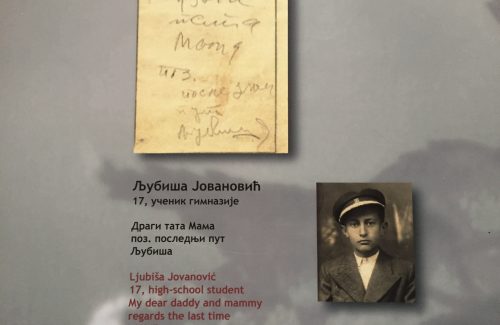 Мама
поз.
последњи
пут
Љубиша
Љубиша Јовановић
17, ученик гимназије
Драги тата Мама
поз. последњи пут
Љубиша
Ljubiša Jovanović
17, high-school student
My dear daddy and mammy
regards the last time